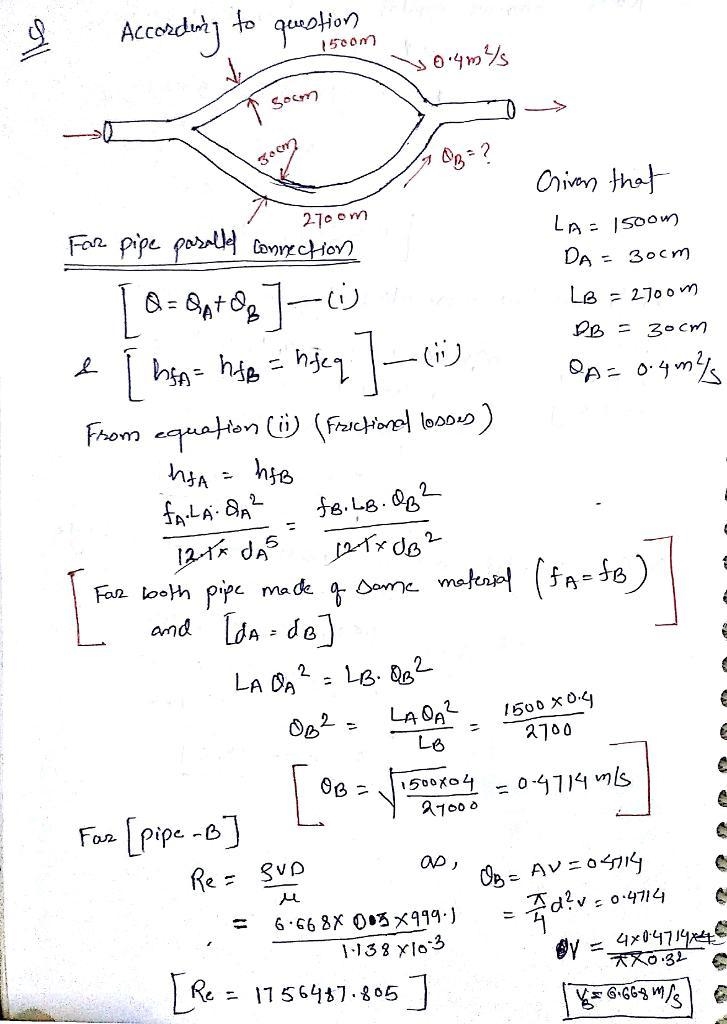 Q According to question
1500m
0.4 m²/s
30cm
30cm
QB = ?
2700m
Given that
LA = 1500m
DA = 30cm
LB = 2700m
DB = 30cm
QA = 0.4 m²/s
Foz pipe parallel connection
[Q = QA + QB] — (i)
& [hfA = hfB = hfeq] — (ii)
From equation (ii) (Frictional losses)
hfA = hfB
fA.LA.QA² / 12.1 x dA⁵ = fB.LB.QB² / 12.1 x dB²
[Foz both pipe made of same material (fA = fB)
and [dA = dB]]
LA QA² = LB. QB²
QB² = LA QA² / LB = 1500 x 0.4 / 2700
[QB = √1500x04 / 27000 = 0.4714 m/s]
Foz [pipe - B]
Re = ρVD / μ
= 6.668 x 003 x 999.1 / 1.138 x 10-3
[Re = 1756487.805]
as, QB = AV = 0.4714
= π/4 d².v = 0.4714
V = 4x0.4714 / πx0.32
VB = 6.668 m/s